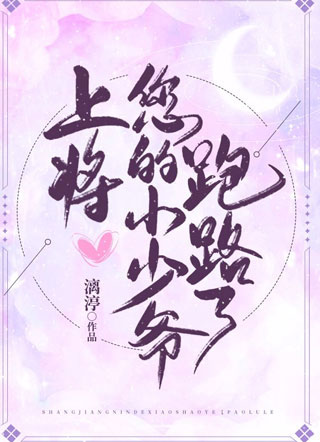 上将
您的小少爷
跑路了
漓渟○作品
SHANGJIANGNINDEXIAOSHAOYEPAOLULE